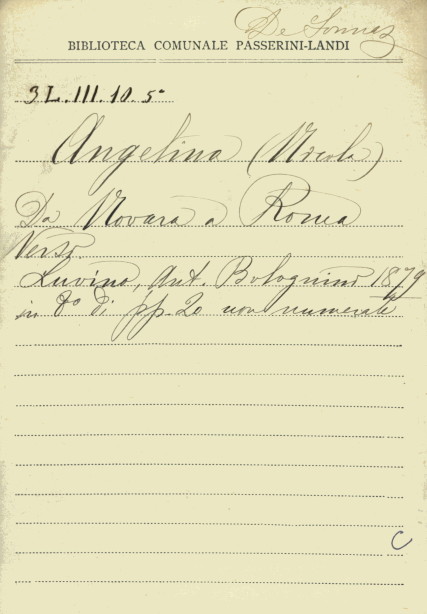 De Sonnaz
BIBLIOTECA COMUNALE PASSERINI-LANDI
3L.III.10.5°
Angelina (Nicola)
Da Novara a Roma
Versi.
Luvino, Ant. Bolognini 1879
in 8° di pp. 20 non numerate
C